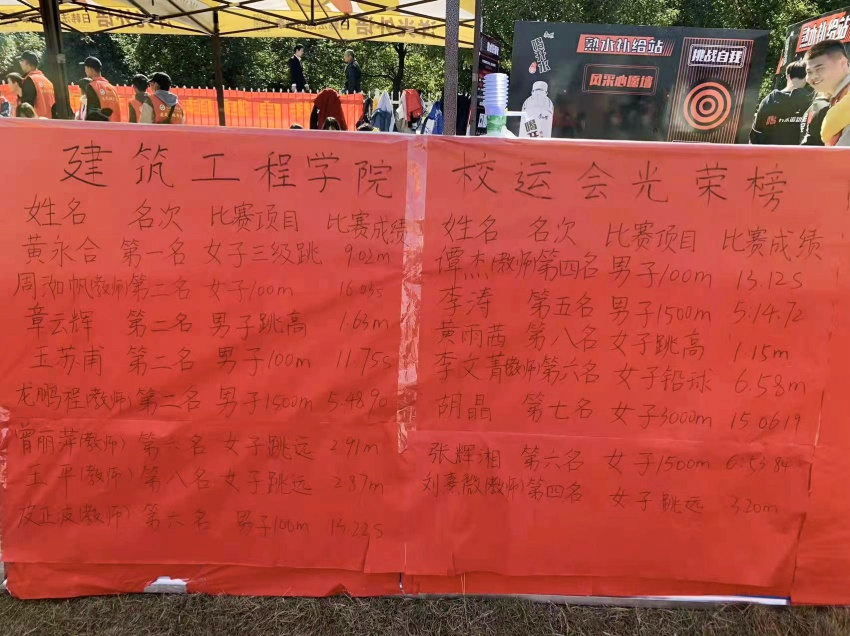 热水补给站
挑战自我
风采心愿墙
建筑工程学院 校运会光荣榜
姓名 名次 比赛项目 比赛成绩
黄永合 第一名 女子三级跳 9.02m
周汝帆(教师) 第二名 女子100m 16.03s
章云辉 第二名 男子跳高 1.63m
王苏甫 第二名 男子100m 11.75s
龙鹏程(教师) 第二名 男子1500m 5.48.90
曾丽萍(教师) 第六名 女子跳远 2.91m
王平(教师) 第八名 女子跳远 2.87m
皮正波(教师) 第六名 男子100m 13.22s
姓名 名次 比赛项目 比赛成绩
谭杰(教师) 第四名 男子100m 13.12s
李涛 第五名 男子1500m 5:14.72
黄雨茜 第八名 女子跳高 1.15m
李文菁(教师) 第六名 女子铅球 6.58m
胡晶 第七名 女子3000m 15.06.19
张辉湘 第六名 女子1500m 6:53.84
刘熹微(教师) 第四名 女子跳远 3.20m